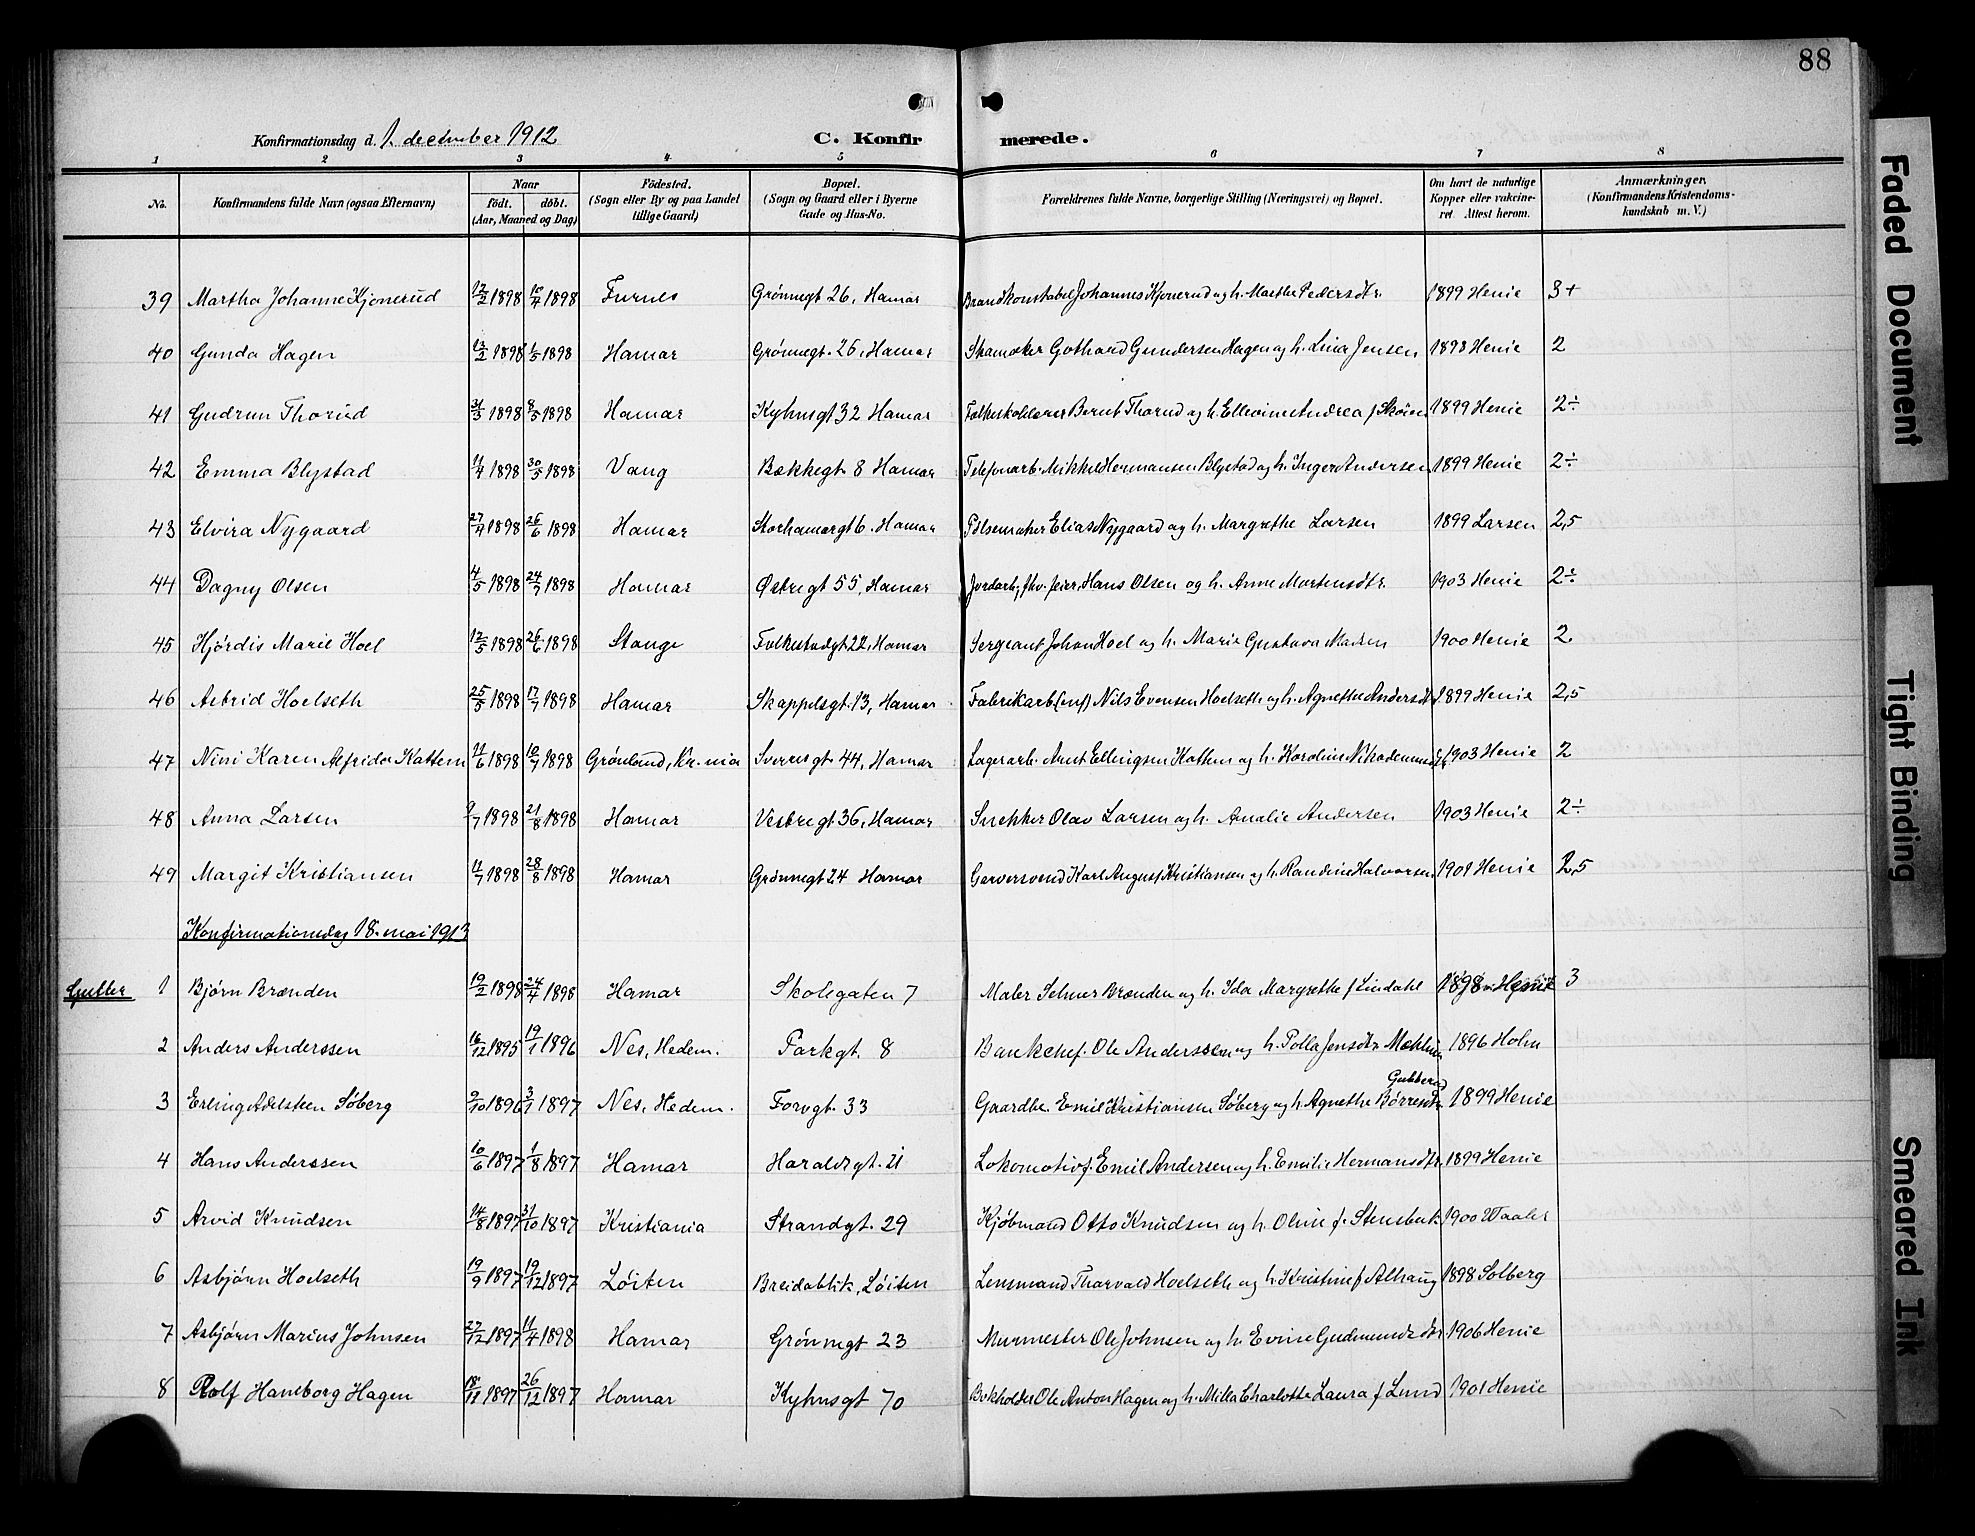 88
Konfirmationsdag d. 1. december 1912 C. Konfirmerede.
1 2 3 4 5 6 7 8
No. Konfirmandens fulde Navn (ogsaa Efternavn) Naar født. døbt. (Aar, Maaned og Dag) Fødested. (Sogn eller By og paa Landet tillige Gaard) Bopæl. (Sogn og Gaard eller i Byerne Gade og Hus-No. Forældrenes fulde Navne, borgerlige Stilling (Næringsvei) og Bopæl. Om havt de naturlige Kopper eller vakcineret. Attest herom. Anmærkninger. (Konfirmandens Kristendomskundskab m. V.)
39 Martha Johanne Kjønerud 12/2 1898 10/4 1898 Furnes Grønnegt 26, Hamar Brandkonstabel Johannes Kjønerud og h. Marthe Pedersdtr. 1899 Henie 3+
40 Gunda Hagen 12/2 1898 1/5 1898 Hamar Grønnegt. 26, Hamar Skomaker Gothard Gundersen Hagen og h. Lina Jensen 1898 Henie 2
41 Gudrun Thorud 31/3 1898 8/5 1898 Hamar Kyhnsgt 32 Hamar Folkeskolelærer Bernt Thorud og h. Ellevine Andrea f Skøien 1899 Henie 2÷
42 Emma Blystad 11/4 1898 30/5 1898 Vang Bækkegt. 8 Hamar Telefonarb. Mikkel Hermansen Blystad og h. Inger Andersen 1899 Henie 2÷
43 Elvira Nygaard 27/4 1898 26/6 1898 Hamar Storhamargt 6. Hamar Pølsemaker Elias Nygaard og h. Margrethe Larsen 1899 Larsen 2,5
44 Dagny Olsen 4/5 1898 24/7 1898 Hamar Østregt 55, Hamar Jordarb., fhv. feier, Hans Olsen og h. Anne Martensdtr. 1903 Henie 2÷
45 Hjørdis Marie Hoel 12/5 1898 26/6 1898 Stange Folkestadgt 22, Hamar Sergeant Johan Hoel og h. Marie Gustava Madsen 1900 Henie 2.
46 Astrid Hoelseth 25/5 1898 17/7 1898 Hamar Skappelsgt. 13, Hamar Fabrikarb. Nils Evensen Hoelseth og h. Agnethe Andersdtr. 1899 Henie 2,5
47 Nini Karen Alfrida Hattem 11/6 1898 10/7 1898 Grønland, Kr.nia Sverresgt. 44, Hamar Lagerarb. Arnt Ellingsen Hattem og h. Karoline 1903 Henie 2
48 Anna Larsen 9/7 1898 21/8 1898 Hamar Vestregt 36, Hamar Snekker Olav Larsen og h. Amalie Andersen 1903 Henie 2÷
49 Margit Kristiansen 11/7 1898 28/8 1898 Hamar Grønnegt 24 Hamar Garversvend Karl August Kristiansen og h. Randine Halvorsen 1901 Henie 2,5
Konfirmationsdag 18. mai 1913
Gutter 1 Bjørn Brænden 19/2 1898 24/4 1898 Hamar Skolegaten 7 Maler Selmer Brænden og h. Ida Margrethe f Lindahl 1898 Henie 3
2 Anders Anderssen 16/12 1895 19/1 1896 Nes, Hedem. Parkgt. 8 Bankchef. Ole Anderssen og h. Polla Jensdtr Mæhlum 1896 Holm
3 Erling Adelsten Søberg 9/10 1896 3/1 1897 Nes, Hedem. Torvgt. 33 Gaardbr. Emil Kristiansen Søberg og h. Agnethe Børresdtr. Gubberud 1899 Henie
4 Hans Anderssen 10/6 1897 1/8 1897 Hamar Haraldsgt. 21 Lokomotivf. Emil Andersen og h. Emilie Hermansdtr. 1899 Henie
5 Arvid Knudsen 14/8 1897 31/10 1897 Kristiania Strandgt. 29 Kjøbmand Otto Knudsen og h. Oline f. Stensbak. 1900 Waaler
6 Asbjørn Hoelseth 19/9 1897 19/12 1897 Løiten Breidablik, Løiten Lensmand Thorvald Hoelseth og h. Kristine f Alhaug 1898 Solberg
7 Asbjørn Marius Johnsen 27/12 1897 11/4 1898 Hamar Grønnegt 23 Murmester Ole Johnsen og h. Evine Gudmundsdtr 1906 Henie
8 Rolf Haneborg Hagen 18/11 1897 26/12 1897 Hamar Kyhnsgt 70 Bokholder Ole Anton Hagen og h. Milla Charlotte Laura f Lund 1901 Henie
Faded Document
Tight Binding
Smeared Ink